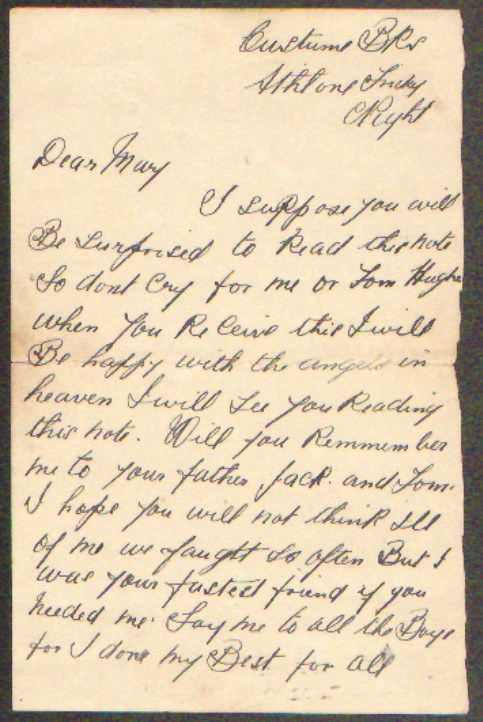 Custume Bks
Athlone Friday
Night
Dear Mary
I suppose you will
Be surprised to Read this note
So dont Cry for me or Tom Hughes
when you Receive this I will
Be happy with the angels in
heaven I will see you Reading
this note. Will you Remmember
me to your father Jack. and Tom.
I hope you will not think Ill
of me we faught so often But I
was your fastest friend if you
needed me. Say me to all the Boys
for I done my Best for all